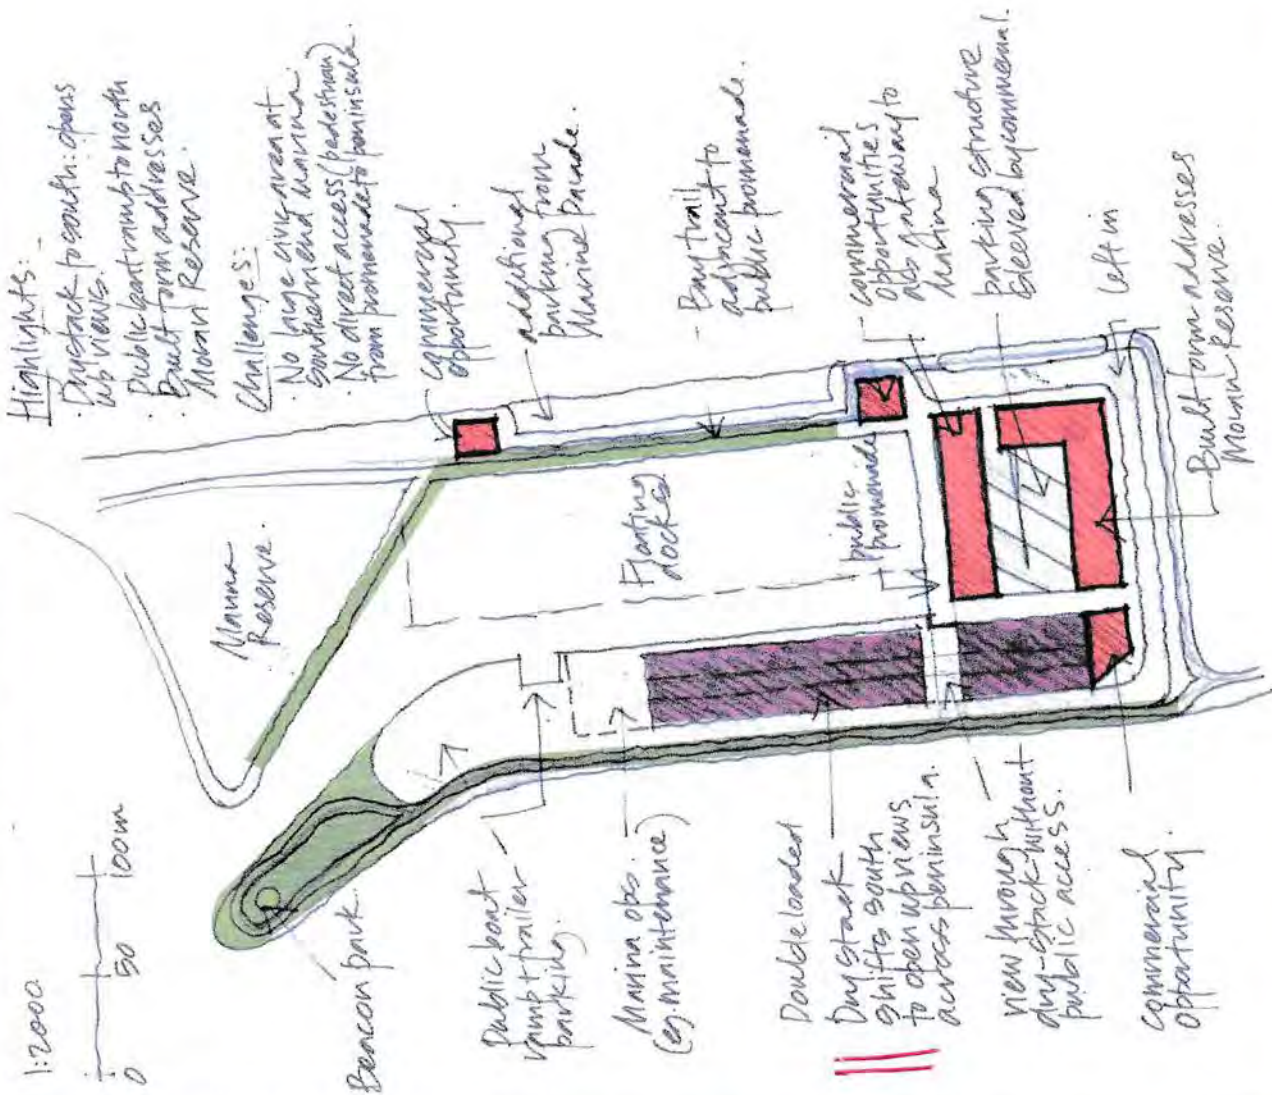 Highlights:
· Drystack to south: opens
up views.
· Public boat ramp to north
· Built form addresses
Moran Reserve.
Challenges:
· No large civic area at
southern end marina.
· No direct access (pedestrian)
from promenade to peninsula.
commercial
opportunity.
additional
parking from
Marine Parade.
Bay trail
adjacent to
public promenade.
commercial
opportunities
as gateway to
Marina
parking structure
sleeved by commercial.
left in
Built form addresses
Moran Reserve.
Marina
Reserve.
Floating
docks
public
promenade
1:2000
0 50 100m
Beacon park.
Public boat
ramp + trailer
parking.
Marina ops.
(eg. maintenance)
Double loaded
Dry stack
shifts south
to open up views
across peninsula.
view through
dry-stack without
public access.
commercial
opportunity.